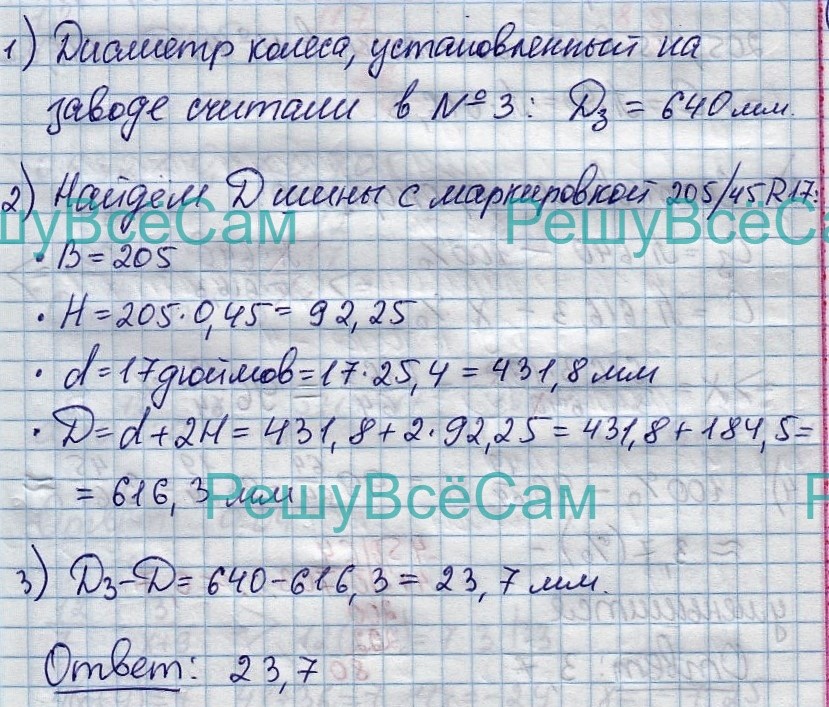 1) Диаметр колеса, установленный на
заводе считали в №3: Dз = 640 мм.
2) Найдём D шины с маркировкой 205/45 R17:
РешуВсёСам РешуВсёСам
· B = 205
· H = 205·0,45 = 92,25
· d = 17 дюймов = 17·25,4 = 431,8 мм
· D = d + 2H = 431,8 + 2·92,25 = 431,8 + 184,5 =
= 616,3 мм
РешуВсёСам
3) Dз – D = 640 – 616,3 = 23,7 мм.
Ответ: 23,7